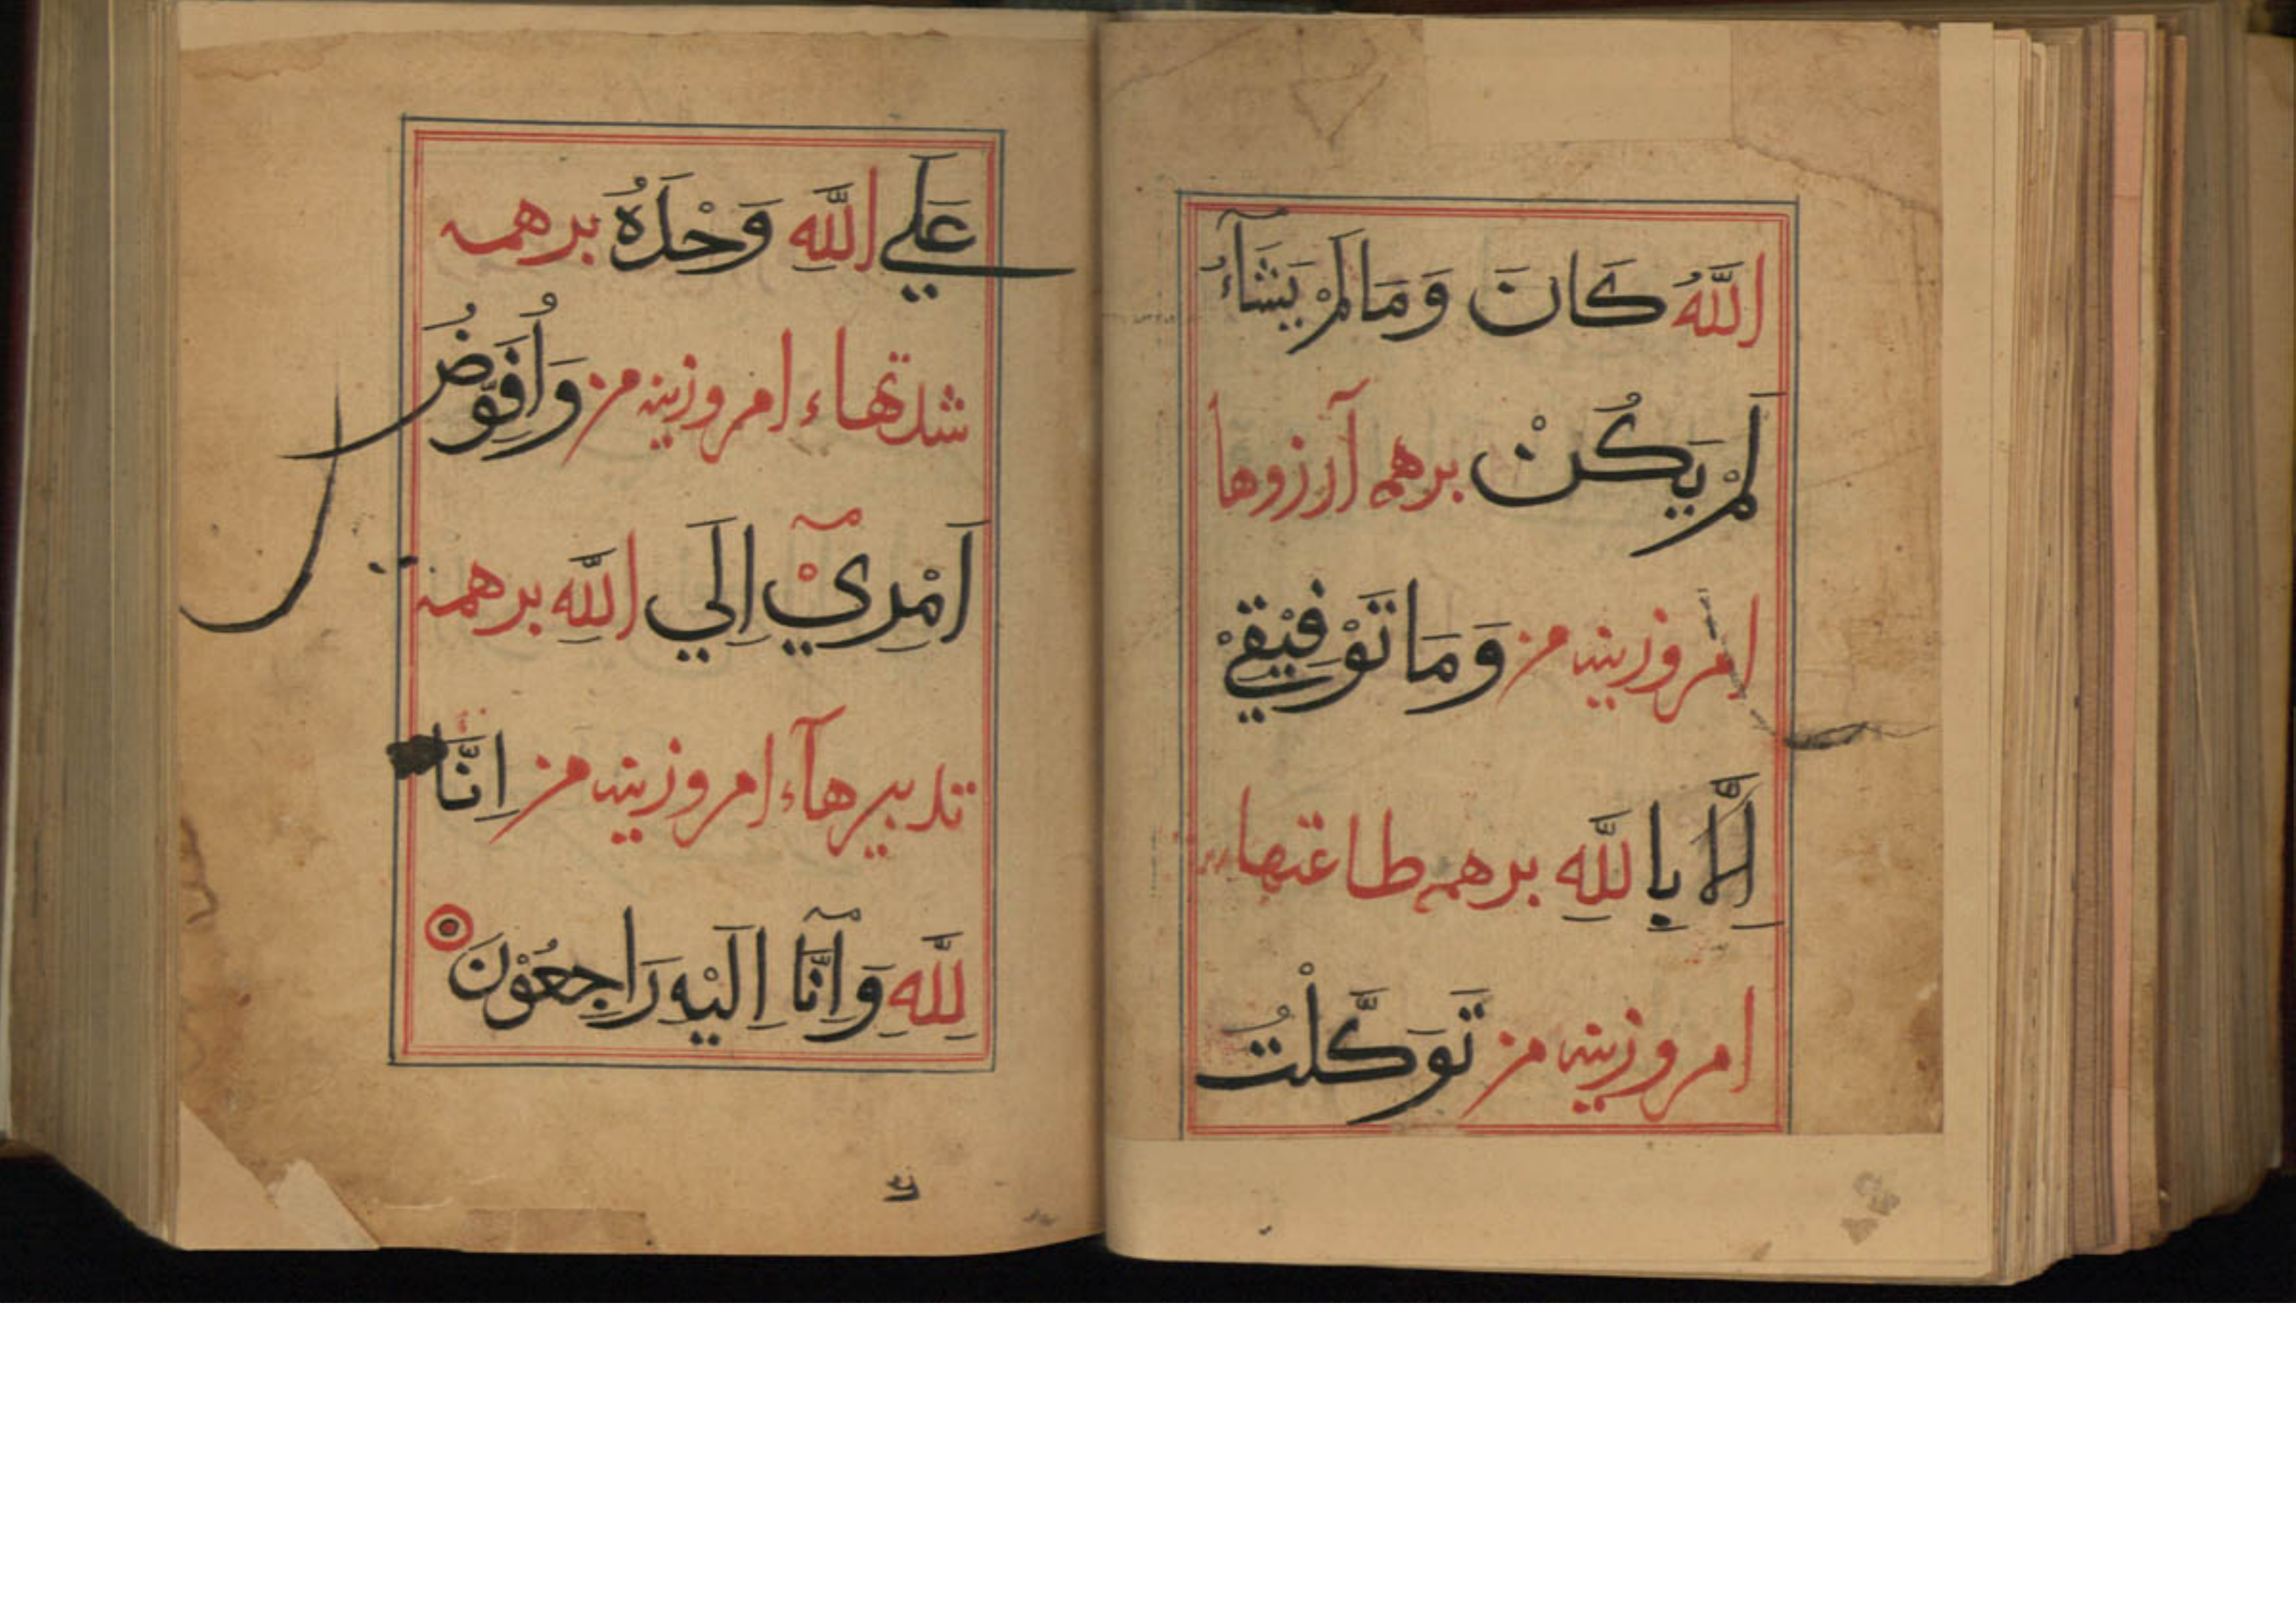 اللَّهُ كَانَ وَمَا لَمْ يَشَآءُ
لَمْ يَكُنْ برهمه آرزوها
امروزینه من وَمَا تَوْفِيْقِيْ
اِلَّا بِاللَّهِ برهمه طاعتهاء
امروزینه من تَوَكَّلْتُ
عَلَي اللَّهِ وَحْدَهُ برهمه
شدتهاء امروزینه من وَاُفَوِّضُ
اَمْرِيْٓ اِلَي اللَّهِ برهمه
تدبیرهآء امروزینه من اِنَّا
لِلَّهِ وَاِنَّآ اِلَيْهِ رَاجِعُوْنَ